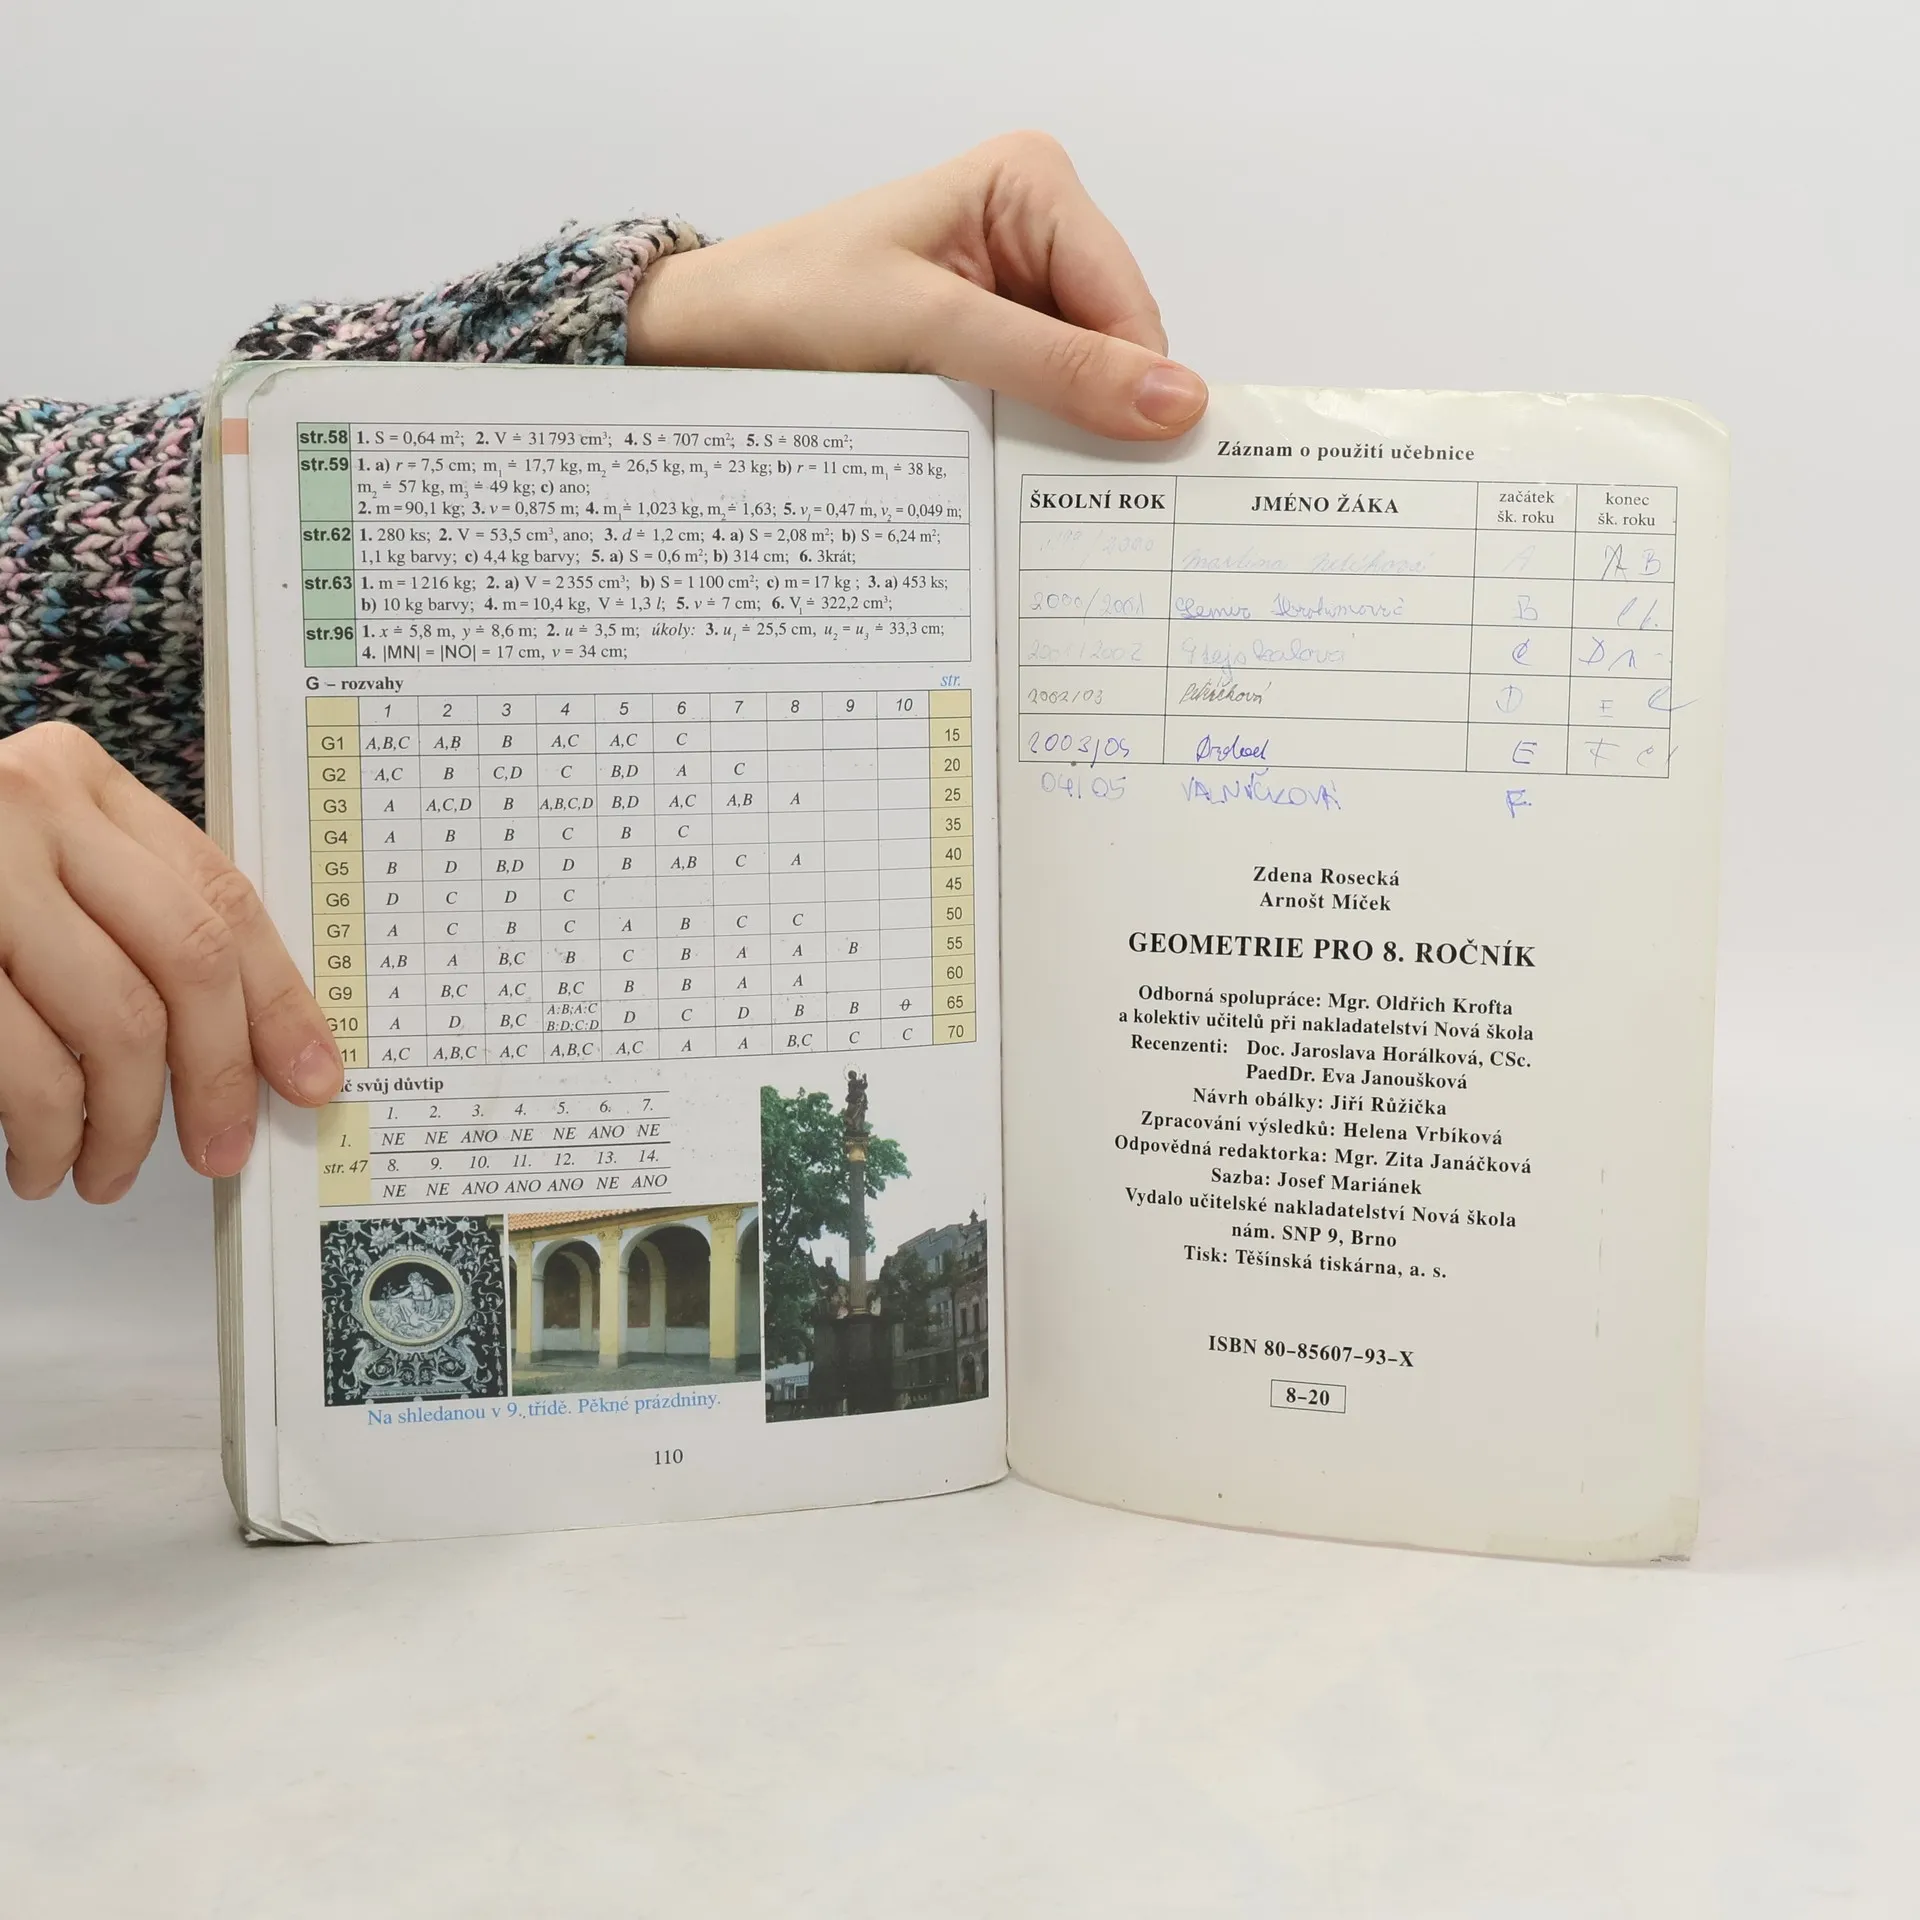 str.58 1. S = 0,64 m²; 2. V ≐ 31 793 cm³; 4. S ≐ 707 cm²; 5. S ≐ 808 cm²;
str.59 1. a) r = 7,5 cm; m₁ ≐ 17,7 kg, m₂ ≐ 26,5 kg, m₃ ≐ 23 kg; b) r = 11 cm, m₁ ≐ 38 kg,
m₂ ≐ 57 kg, m₃ ≐ 49 kg; c) ano;
2. m = 90,1 kg; 3. v = 0,875 m; 4. m₁ ≐ 1,023 kg, m₂ ≐ 1,63; 5. v₁ = 0,47 m, v₂ = 0,049 m;
str.62 1. 280 ks; 2. V = 53,5 cm³, ano; 3. d ≐ 1,2 cm; 4. a) S = 2,08 m²; b) S = 6,24 m²;
1,1 kg barvy; c) 4,4 kg barvy; 5. a) S = 0,6 m²; b) 314 cm; 6. 3krát;
str.63 1. m = 1216 kg; 2. a) V = 2355 cm³; b) S = 1100 cm²; c) m = 17 kg; 3. a) 453 ks;
b) 10 kg barvy; 4. m = 10,4 kg, V ≐ 1,3 l; 5. v ≐ 7 cm; 6. V₁ ≐ 322,2 cm³;
str.96 1. x ≐ 5,8 m, y ≐ 8,6 m; 2. u ≐ 3,5 m; úkoly: 3. u₁ ≐ 25,5 cm, u₂ = u₃ ≐ 33,3 cm;
4. |MN| = |NO| = 17 cm, v = 34 cm;
G – rozvahy str.
1 2 3 4 5 6 7 8 9 10
G1 A,B,C A,B B A,C A,C C 15
G2 A,C B C,D C B,D A C 20
G3 A A,C,D B A,B,C,D B,D A,C A,B A 25
G4 A B B C B C 35
G5 B D B,D D B A,B C A 40
G6 D C D C 45
G7 A C B C A B C C 50
G8 A,B A B,C B C B A A B 55
G9 A B,C A,C B,C B B A A 60
G10 A D B,C A:B;A:C B:D;C:D D C D B B 0 65
11 A,C A,B,C A,C A,B,C A,C A A B,C C C 70
č svůj důvtip
1. 2. 3. 4. 5. 6. 7.
1. NE NE ANO NE NE ANO NE
str. 47 8. 9. 10. 11. 12. 13. 14.
NE NE ANO ANO ANO NE ANO
Na shledanou v 9. třídě. Pěkné prázdniny.
110
Záznam o použití učebnice
ŠKOLNÍ ROK JMÉNO ŽÁKA začátek šk. roku konec šk. roku
/2000 A A B
2000/2001 B
2001/2002 C D
2002/03 D E
2003/05 E F
04/05 VALNÍČKOVÁ F
Zdena Rosecká
Arnošt Míček
GEOMETRIE PRO 8. ROČNÍK
Odborná spolupráce: Mgr. Oldřich Krofta
a kolektiv učitelů při nakladatelství Nová škola
Recenzenti: Doc. Jaroslava Horálková, CSc.
PaedDr. Eva Janoušková
Návrh obálky: Jiří Růžička
Zpracování výsledků: Helena Vrbíková
Odpovědná redaktorka: Mgr. Zita Janáčková
Sazba: Josef Mariánek
Vydalo učitelské nakladatelství Nová škola
nám. SNP 9, Brno
Tisk: Těšínská tiskárna, a. s.
ISBN 80–85607–93–X
8–20